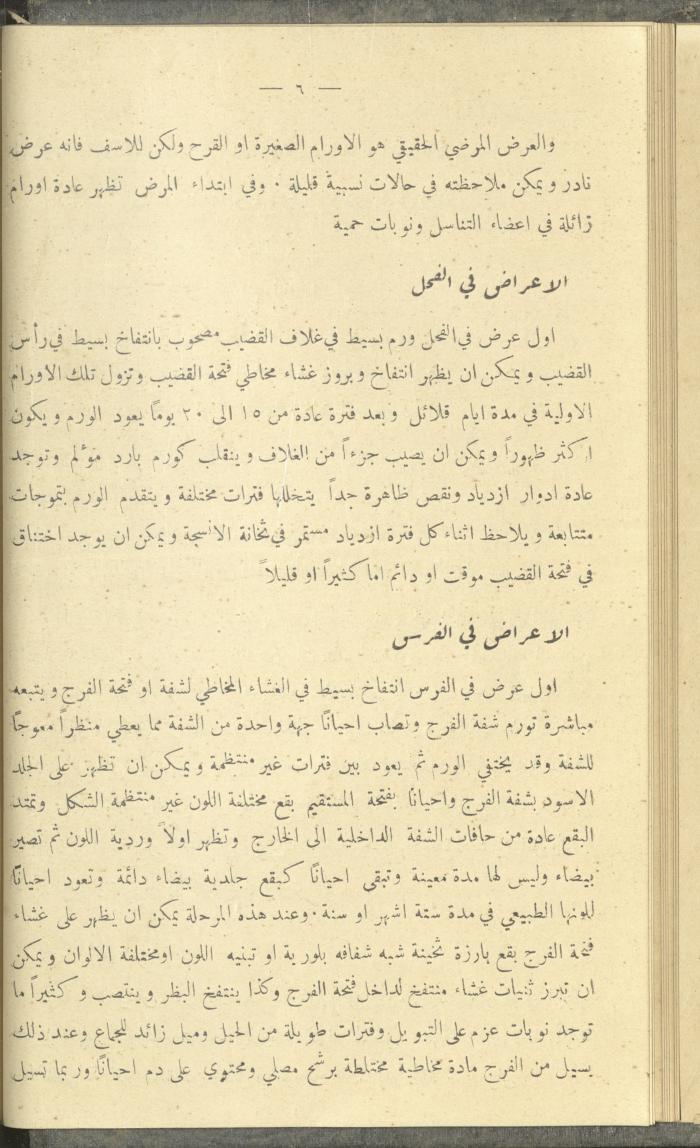 — ٦ —
والعرض المرضي الحقيقي هو الاورام الصغيرة او القرح ولكن للاسف فانه عرض
نادر ويمكن ملاحظته في حالات نسبية قليلة . وفي ابتداء المرض تظهر عادة اورام
زائلة في اعضاء التناسل ونوبات حمية
الاعراض في الفحل
اول عرض في الفحل ورم بسيط في غلاف القضيب مصحوب بانتفاخ بسيط في رأس
القضيب ويمكن ان يظهر انتفاخ وبروز غشاء مخاطي فتحة القضيب وتزول تلك الاورام
الاولية في مدة ايام قلائل وبعد فترة عادة من ١٥ الى ٢٠ يوماً يعود الورم ويكون
اكثر ظهوراً ويمكن ان يصيب جزءاً من الغلاف وينقلب كورم بارد مؤلم وتوجد
عادة ادوار ازدياد ونقص ظاهرة جداً يتخللها فترات مختلفة ويتقدم الورم بتموجات
متتابعة ويلاحظ اثناء كل فترة ازدياد مستمر في ثخانة الانسجة ويمكن ان يوجد اختناق
في فتحة القضيب موقت او دائم اما كثيراً او قليلاً
الاعراض في الفرس
اول عرض في الفرس انتفاخ بسيط في الغشاء المخاطي لشفة او فتحة الفرج ويتبعه
مباشرة تورم شفة الفرج وتصاب احياناً جهة واحدة من الشفة مما يعطي منظراً معوجاً
للشفة وقد يختفي الورم ثم يعود بين فترات غير منتظمة ويمكن ان تظهر على الجلد
الاسود بشفة الفرج واحياناً بفتحة المستقيم بقع مختلفة اللون غير منتظمة الشكل وتمتد
البقع عادة من حافات الشفة الداخلية الى الخارج وتظهر اولاً وردية اللون ثم تصير
بيضاء وليس لها مدة معينة وتبقى احياناً كبقع جلدية بيضاء دائمة وتعود احياناً
للونها الطبيعي في مدة ستة اشهر او سنة . وعند هذه المرحلة يمكن ان يظهر على غشاء
فتحة الفرج بقع بارزة ثخينة شبه شفافه بلورية او تبنيه اللون او مختلفة الالوان ويمكن
ان تبرز ثنيات غشاء منتفخ لداخل فتحة الفرج وكذا ينتفخ البظر وينتصب وكثيراً ما
توجد نوبات عزم على التبويل وفترات طويلة من الحيل وميل زائد للجماع وعند ذلك
يسيل من الفرج مادة مخاطية مختلطة برشح مصلي ومحتوي على دم احياناً وربما تسيل